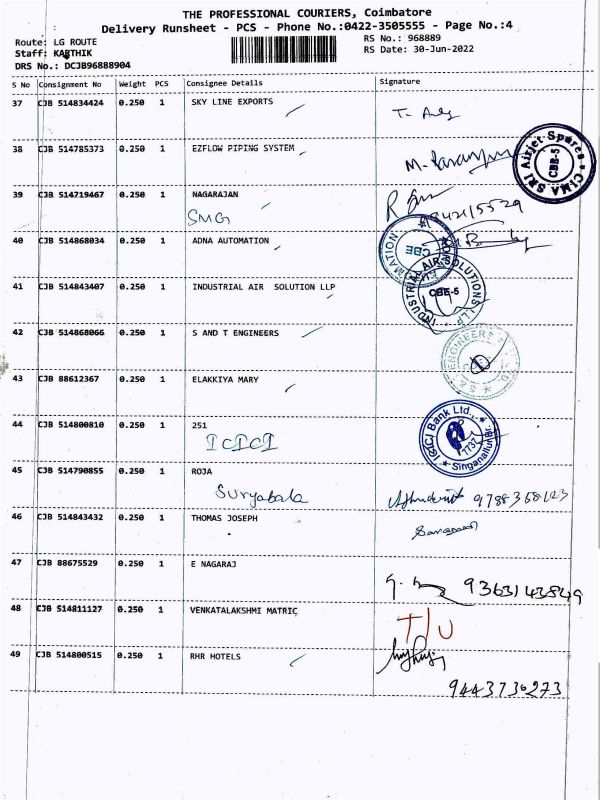 THE PROFESSIONAL COURIERS, Coimbatore
Delivery Runsheet - PCS - Phone No.:0422-3505555 - Page No.:4
Route: LG ROUTE
RS No.: 968889
Staff: KARTHIK
RS Date: 30-Jun-2022
DRS No.: DCJB96888904
S No Consignment No Weight PCS Consignee Details Signature
37 CJB 514834424 0.250 1 SKY LINE EXPORTS
38 CJB 514785373 0.250 1 EZFLOW PIPING SYSTEM
CIMA SRI Airjet Spares CBE-5
39 CJB 514719467 0.250 1 NAGARAJAN
SMG
40 CJB 514868034 0.250 1 ADNA AUTOMATION
CBE
41 CJB 514843407 0.250 1 INDUSTRIAL AIR SOLUTION LLP
INDUSTRIAL AIR SOLUTIONS LLP CBE-5
42 CJB 514868066 0.250 1 S AND T ENGINEERS
43 CJB 88612367 0.250 1 ELAKKIYA MARY
44 CJB 514800810 0.250 1 251
ICICI
ICICI Bank Ltd., Singanallur Br.
45 CJB 514790855 0.250 1 ROJA
Suryabala
46 CJB 514843432 0.250 1 THOMAS JOSEPH
47 CJB 88675529 0.250 1 E NAGARAJ
9363143849
48 CJB 514811127 0.250 1 VENKATALAKSHMI MATRIC
T/U
49 CJB 514800515 0.250 1 RHR HOTELS
9443736273